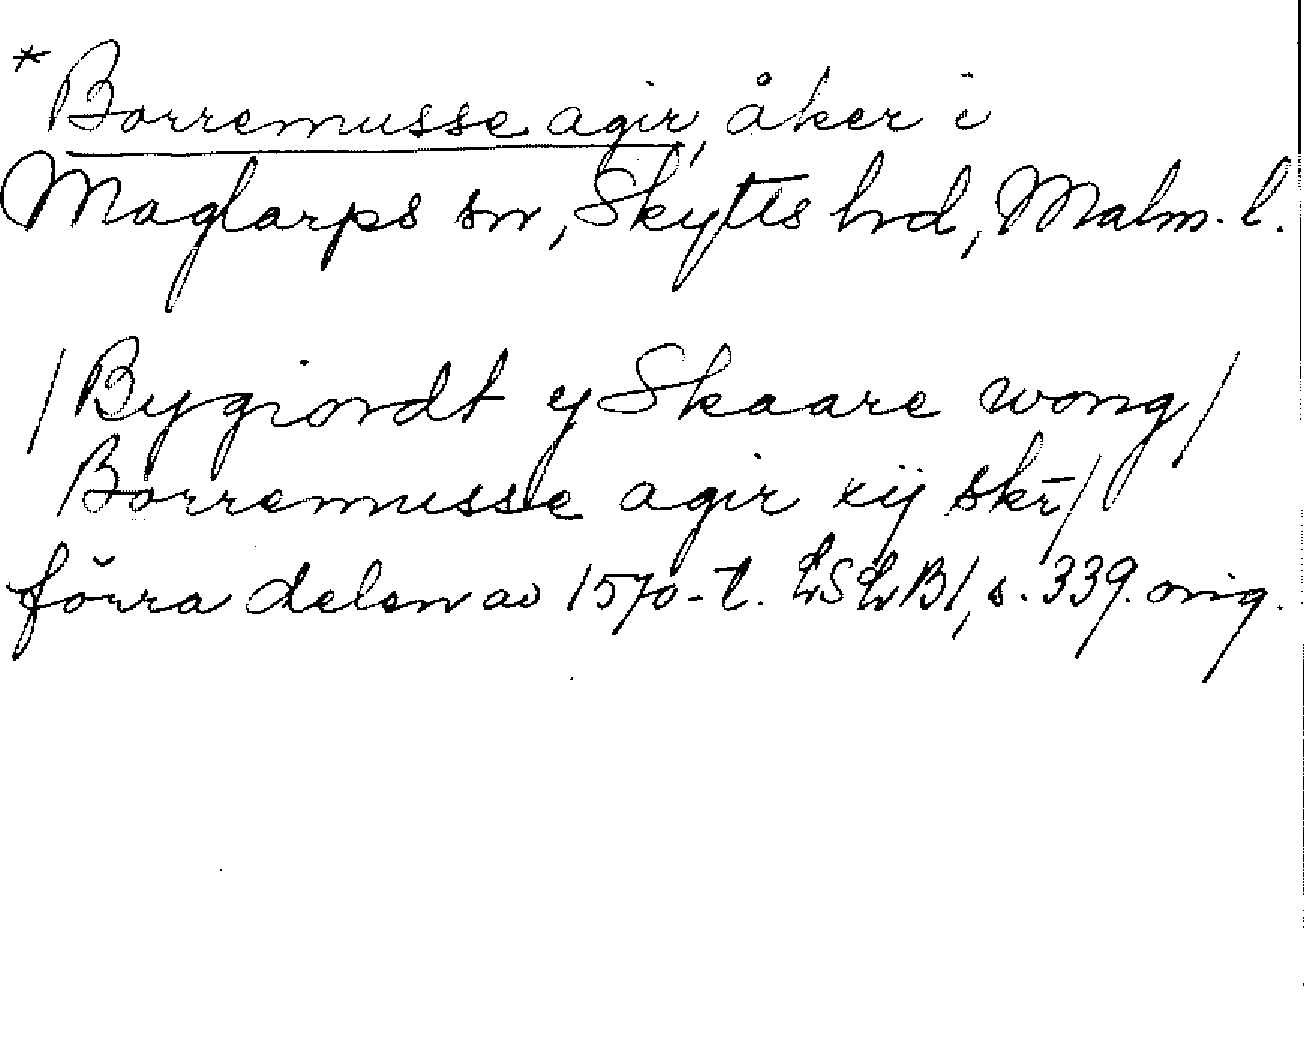 *Borremusse agir, åker i
Maglarps sn, Skytts hd, Malm. l.
/Bygiordt y Skaare wong/
Borremusse agir xij skr̄/
förra delen av 1570-t. LSLB1, s. 339. orig.